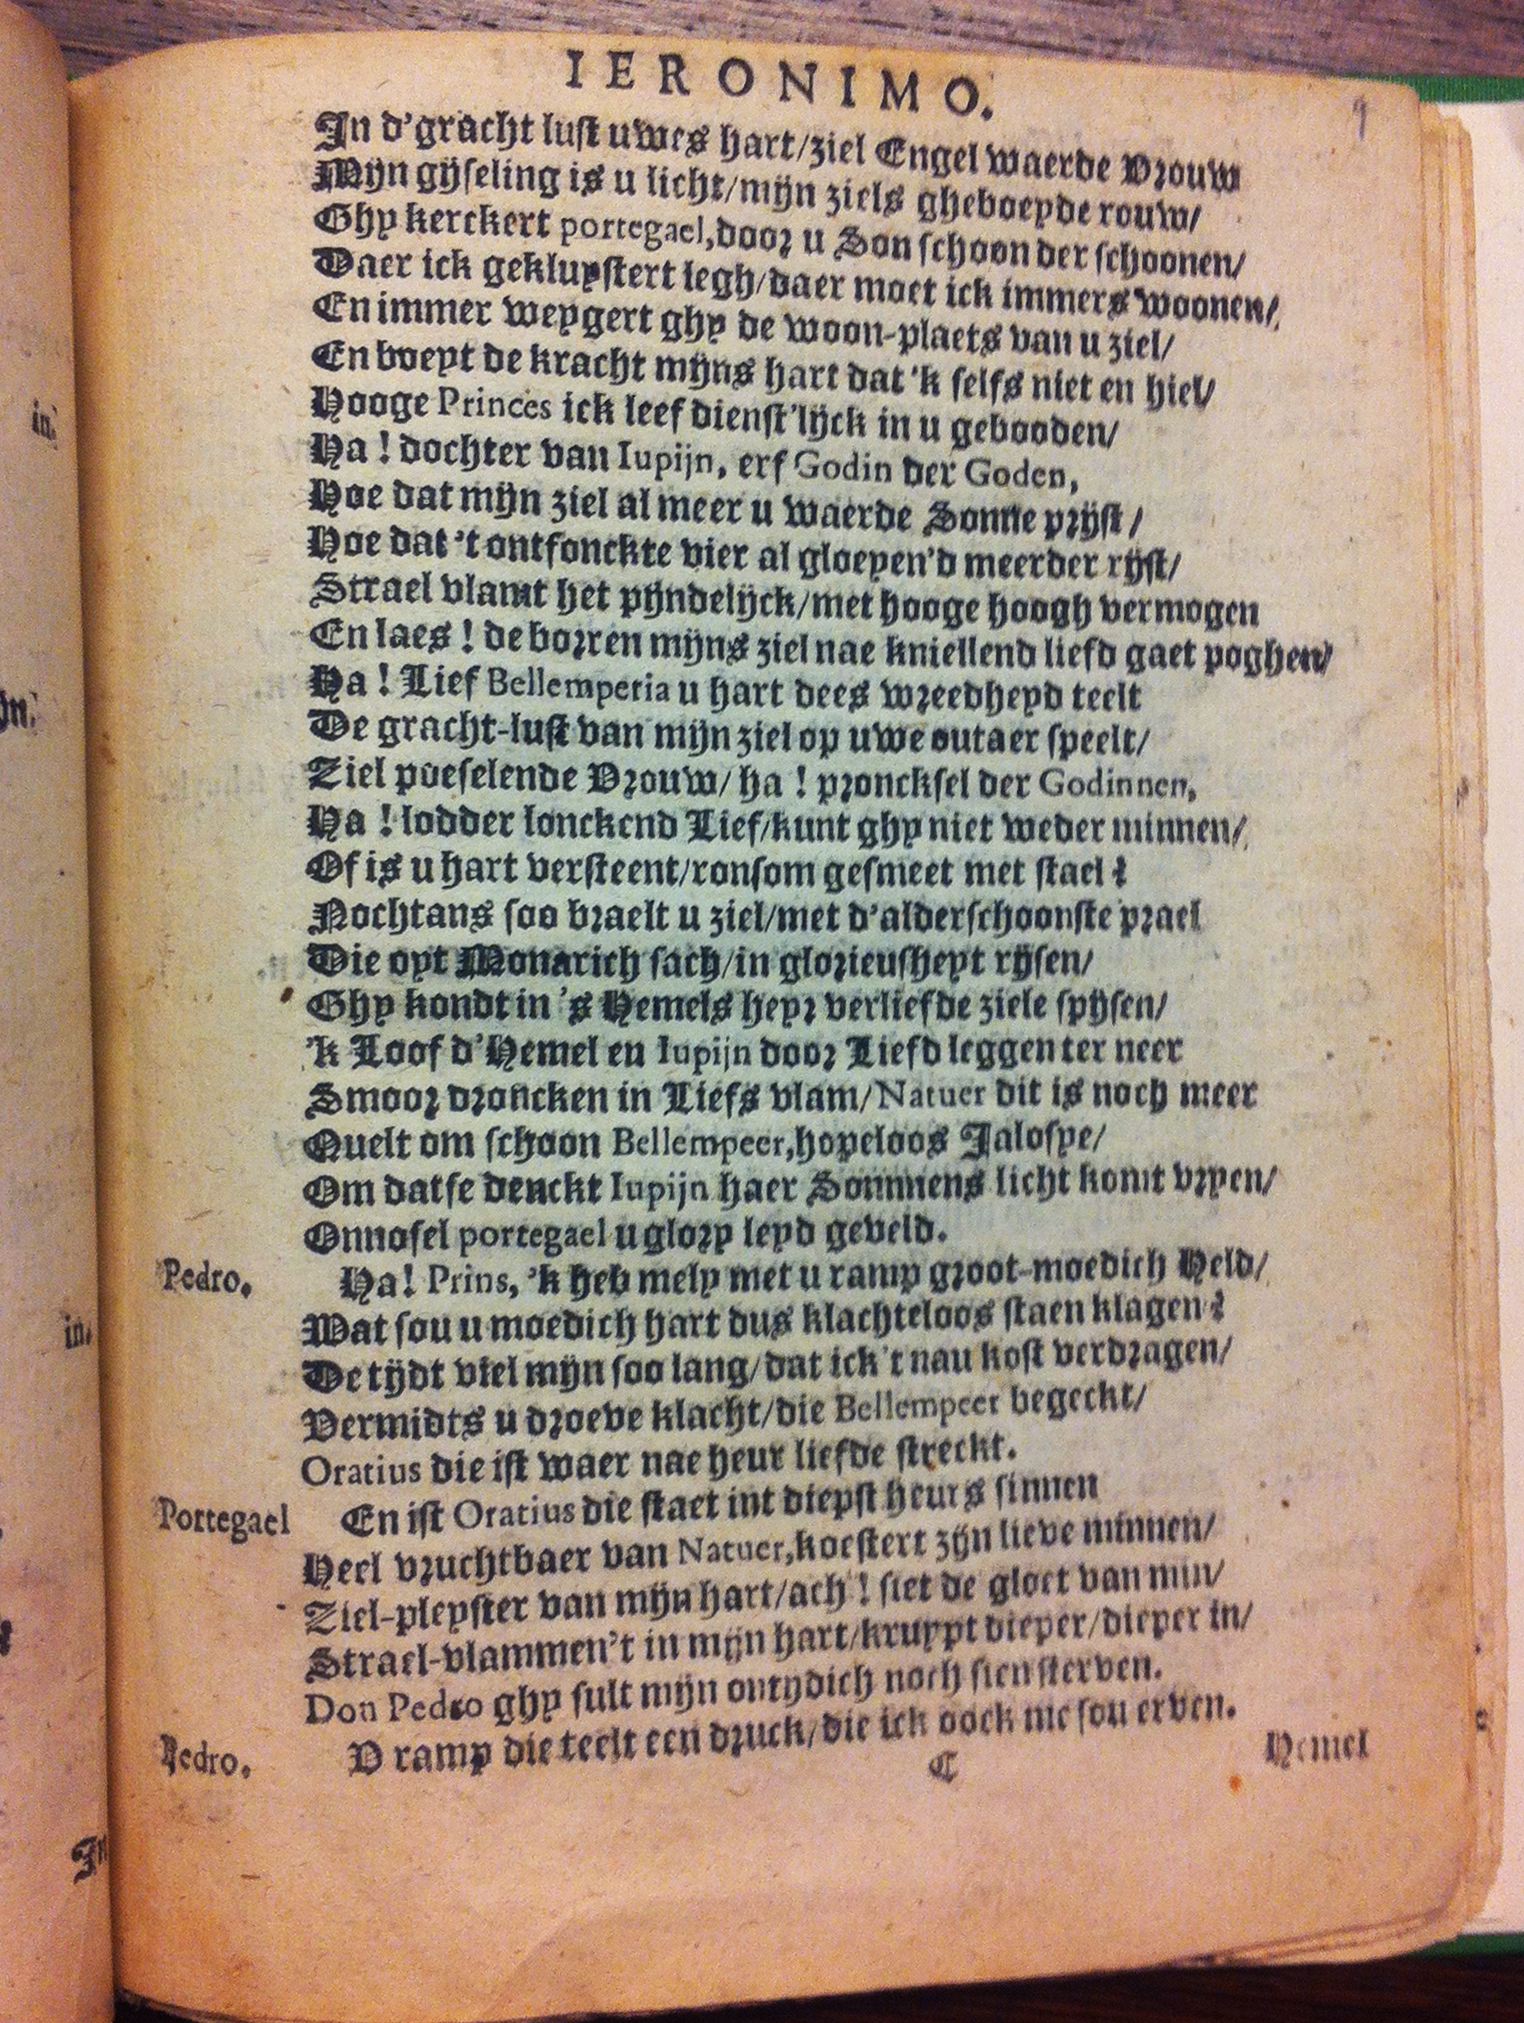 IERONIMO.
9
In d'gracht lust uwes hart/ziel Engel waerde Vrouw
Mijn gijseling is u licht/mijn ziels gheboeyde rouw/
Ghy kerckert portegael,door u Son schoon der schoonen/
Daer ick gekluystert legh/daer moet ick immers woonen/
En immer weygert ghy de woon-plaets van u ziel/
En boeyt de kracht mijns hart dat 'k selfs niet en hiel/
Hooge Princes ick leef dienst'lijck in u gebooden/
Ha! dochter van Iupijn, erf Godin der Goden,
Hoe dat mijn ziel al meer u waerde Sonne prijst/
Hoe dat 't ontfonckte vier al gloeyen'd meerder rijst/
Strael vlamt het pijndelijck/met hooge hoogh vermogen
En laes! de borren mijns ziel nae kniellend liefd gaet poghen/
Ha! Lief Bellemperia u hart dees wreedheyd teelt
De gracht-lust van mijn ziel op uwe outaer speelt/
Ziel poeselende Vrouw/ha! proncksel der Godinnen,
Ha! lodder lonckend Lief/kunt ghy niet weder minnen/
Of is u hart versteent/ronsom gesmeet met stael?
Nochtans soo braelt u ziel/met d'alderschoonste prael
Die oyt Monarich sach/in glorieusheyt rijsen/
Ghy kondt in 's Hemels heyr verliefde ziele spijsen/
'k Loof d'Hemel en Iupijn door Liefd leggen ter neer
Smoor droncken in Liefs vlam/Natuer dit is noch meer
Quelt om schoon Bellempeer,hopeloos Jalosye/
Om datse denckt Iupijn haer Sonnnens licht komt vryen/
Onnosel portegael u glory leyd geveld.
Pedro. Ha! Prins, 'k heb mely met u ramp groot-moedich Held/
Wat sou u moedich hart dus klachteloos staen klagen?
De tijdt viel mijn soo lang/dat ick 't nau kost verdragen/
Vermidts u droeve klacht/die Bellempeer begeckt/
Oratius die ist waer nae heur liefde streckt.
Portegael En ist Oratius die staet int diepst heurs sinnen
Heel vruchtbaer van Natuer,koestert zijn lieve minnen/
Ziel-pleyster van mijn hart/ach! siet de gloet van min/
Strael-vlammen't in mijn hart/kruypt dieper/dieper in/
Don Pedro ghy sult mijn ontydich noch sien sterven.
Pedro. V ramp die teelt een druck/die ick oock me sou erven.
C Hemel
in.
in.